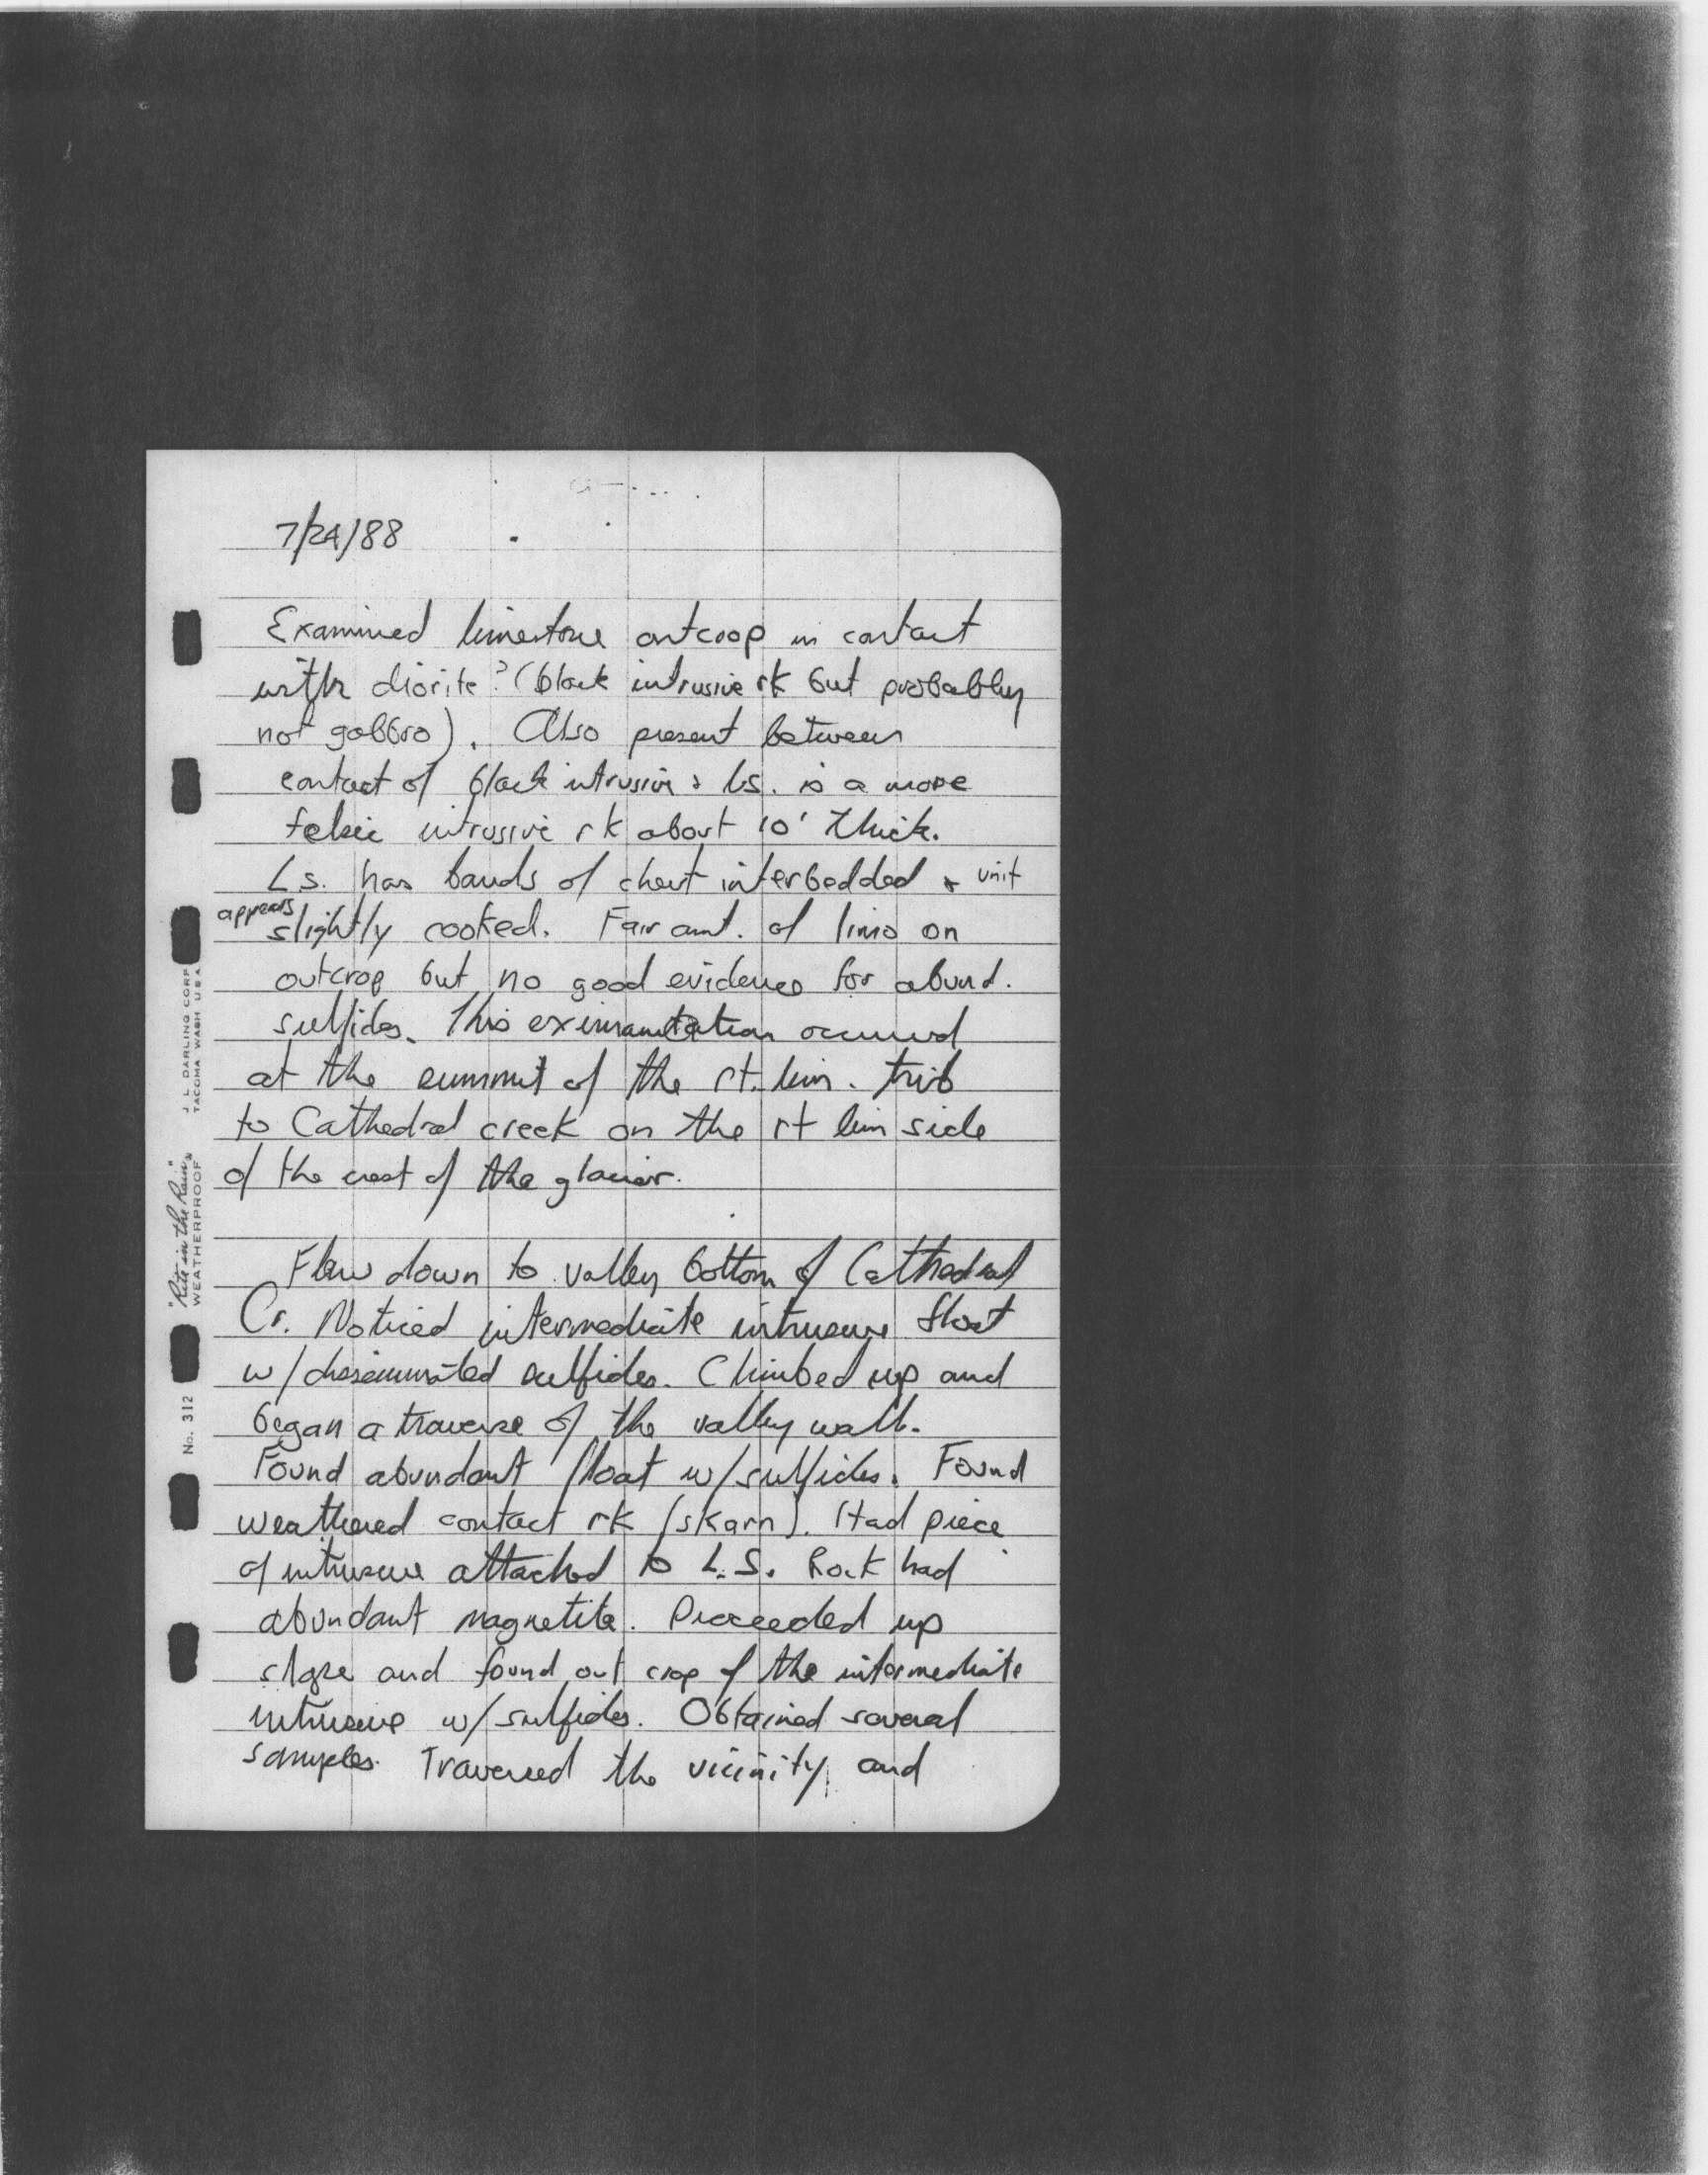 7/24/88
Examined limestone outcrop in contact
with diorite? (black intrusive rk but probably
not gabbro). Also present between
contact of black intrusive & ls. is a more
felsic intrusive rk about 10' thick.
Ls. has bands of chert interbedded & unit
appears slightly cooked. Fair amt. of limo on
outcrop but no good evidence for abund.
sulfides. This occurred
at the summit of the rt. lim. trib
to Cathedral creek on the rt lim side
of the crest of the glacier.
Flew down to valley bottom of Cathedral
Cr. Noticed intermediate intrusive float
w/disseminated sulfides. Climbed up and
began a traverse of the valley wall.
Found abundant float w/sulfides. Found
weathered contact rk (skarn). Had piece
of intrusive attached to L.S. Rock had
abundant magnetite. Proceeded up
slope and found out crop of the intermediate
intrusive w/sulfides. Obtained several
samples. Traversed the vicinity and
J. L. DARLING CORP
TACOMA WASH USA
"Rite in the Rain"
WEATHERPROOF
No. 312